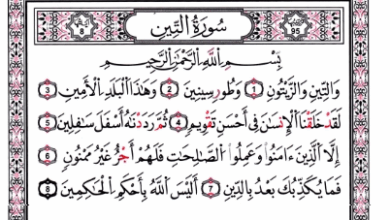 سُورَةُ التِّين
8 95
بِسْمِ اللَّهِ الرَّحْمَٰنِ الرَّحِيمِ
وَالتِّينِ وَالزَّيْتُونِ ١ وَطُورِ سِينِينَ ٢ وَهَٰذَا الْبَلَدِ الْأَمِينِ ٣
لَقَدْ خَلَقْنَا الْإِنسَانَ فِي أَحْسَنِ تَقْوِيمٍ ٤ ثُمَّ رَدَدْنَاهُ أَسْفَلَ سَافِلِينَ ٥
إِلَّا الَّذِينَ ءَامَنُوا وَعَمِلُوا الصَّالِحَاتِ فَلَهُمْ أَجْرٌ غَيْرُ مَمْنُونٍ ٦
فَمَا يُكَذِّبُكَ بَعْدُ بِالدِّينِ ٧ أَلَيْسَ اللَّهُ بِأَحْكَمِ الْحَاكِمِينَ ٨